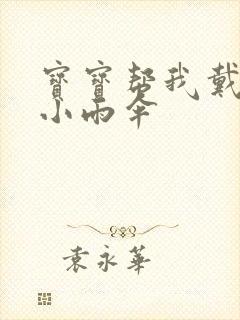 寶寶幫我戴
小雨伞
袁永華